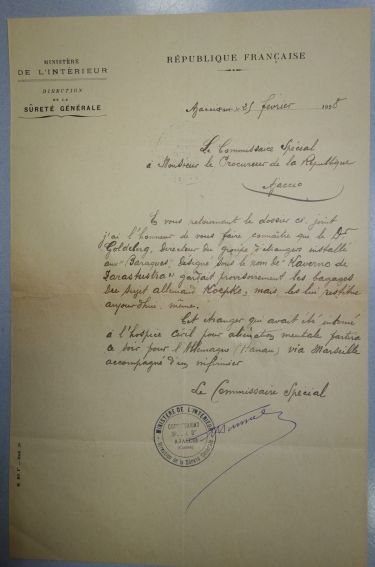 MINISTÈRE
DE L'INTÉRIEUR
DIRECTION
DE LA
SÛRETÉ GÉNÉRALE
RÉPUBLIQUE FRANÇAISE
Ajaccio, le 25 février 1928
Le Commissaire Spécial
à Monsieur le Procureur de la République
Ajaccio
En vous retournant le dossier ci-joint
j'ai l'honneur de vous faire connaître que le Dr
Goldberg, Directeur du groupe d'étrangers installé
aux "Baragues", désigné sous le nom de "Kaverno de
Zarastustra" gardait provisoirement les bagages
du sujet allemand Koepke, mais les lui restitue
aujourd'hui même.
Cet étranger qui avait été interné
à l'hospice Civil pour aliénation mentale partira
ce soir pour l'Allemagne (Hanau) via Marseille
accompagné d'un infirmier
Le Commissaire Spécial
MINISTÈRE DE L'INTÉRIEUR
COMMISSARIAT
AJACCIO
(Corse)
Direction de la Sûreté Générale